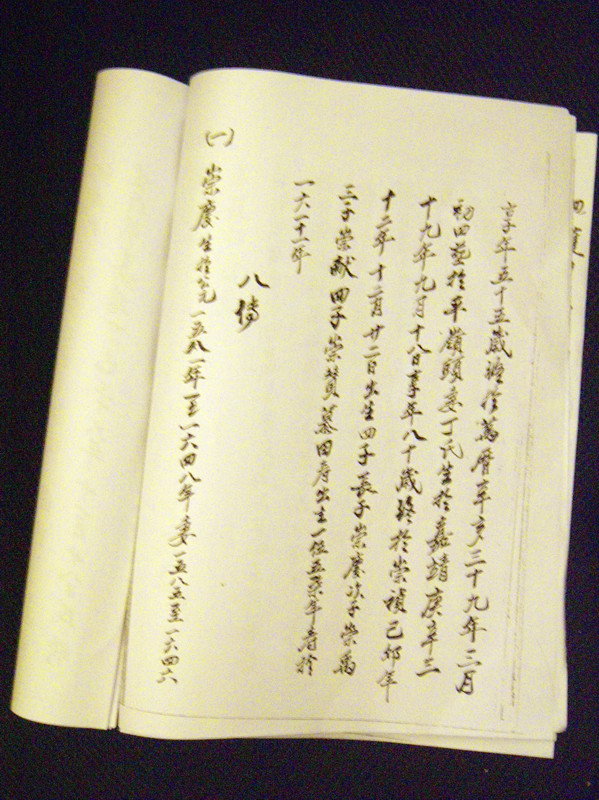 享年五十五歲於萬曆辛亥三十九年三月
初四葬於平嶺頭妻丁氏生於嘉靖庚辛三
十九年九月十八日享年八十歲終於崇禎己卯年
十二年十二月廿二日出生四子長子崇慶次子崇為
三子崇献四子崇贊慕田出一位五年於
一六一一年
八傳
(一) 崇慶生於公元一五八一年至一六四八年妻一五八五至一六四六